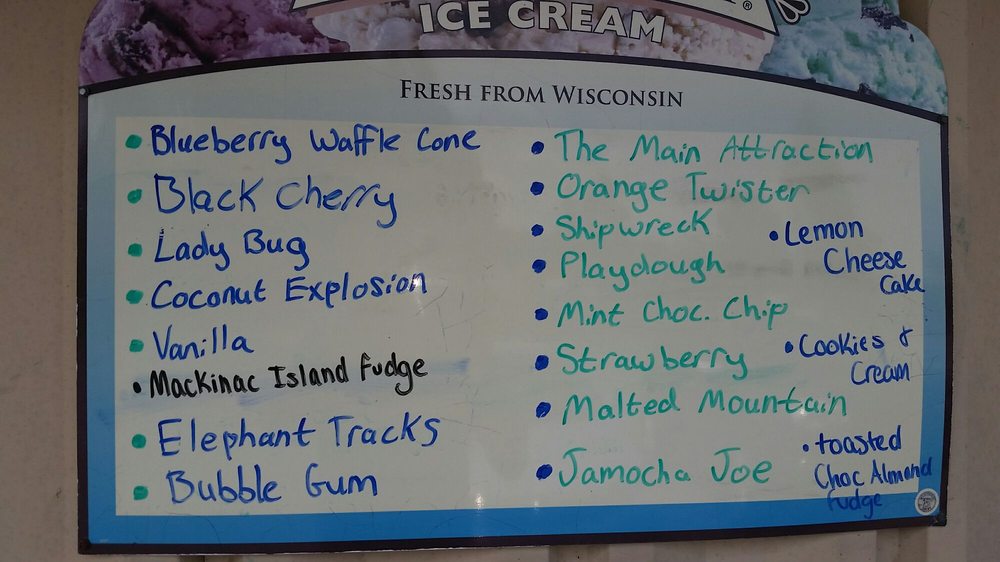 ICE CREAM
FRESH FROM WISCONSIN
• Blueberry Waffle Cone
• Black Cherry
• Lady Bug
• Coconut Explosion
• Vanilla
• Mackinac Island Fudge
• Elephant Tracks
• Bubble Gum
• The Main Attraction
• Orange Twister
• Shipwreck
• Playdough
• Mint Choc. Chip
• Strawberry
• Malted Mountain
• Jamocha Joe
• Lemon
Cheese
Cake
• Cookies &
Cream
• toasted
Choc Almond
fudge